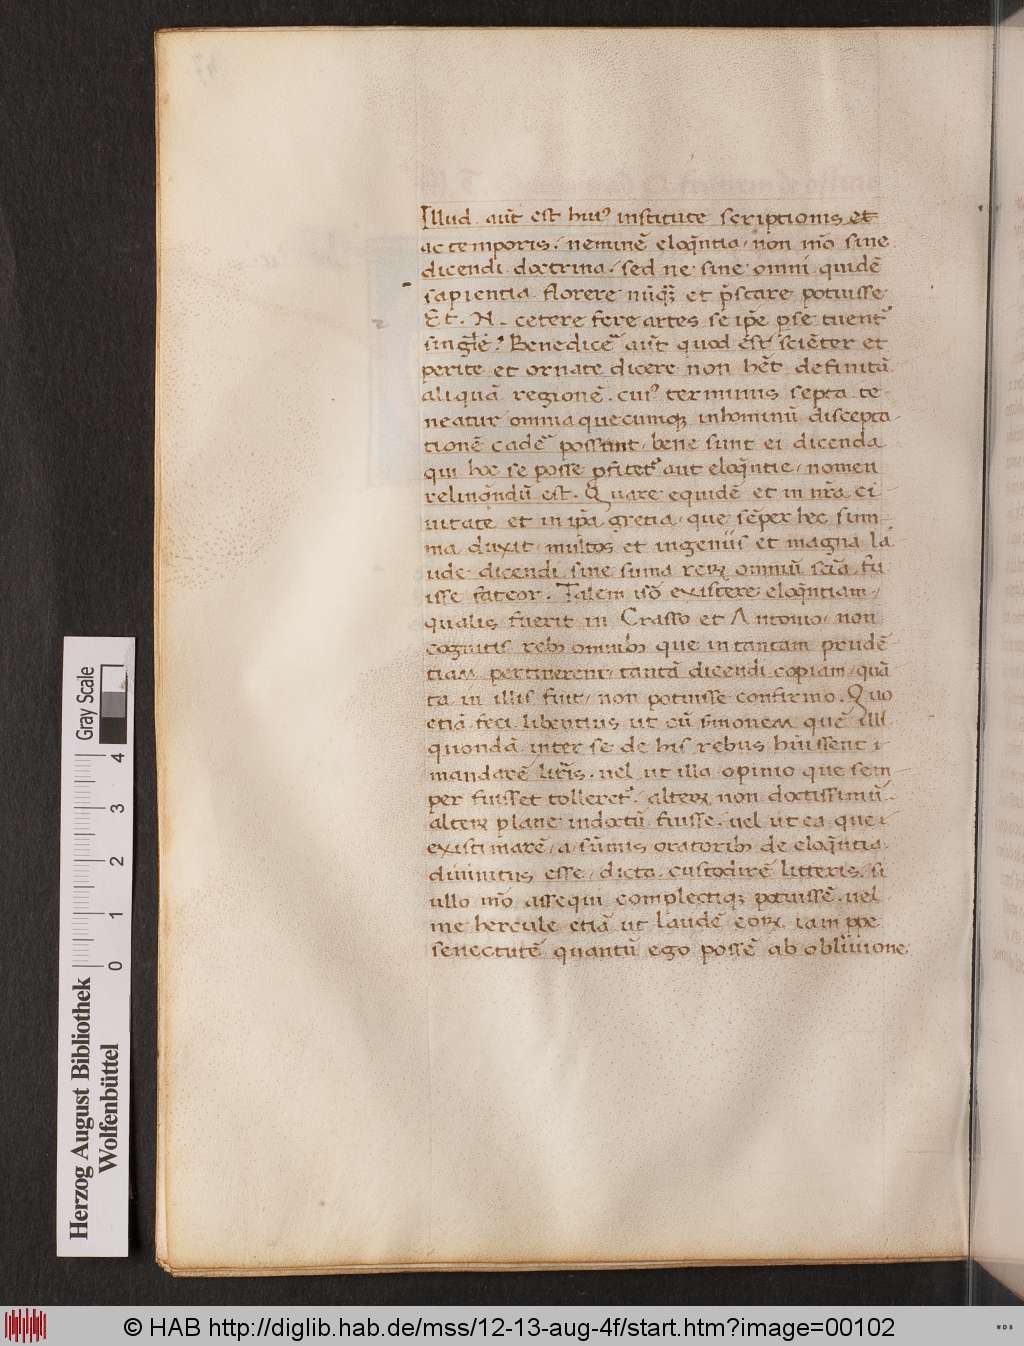 Illud aut̄ est hui᷒ institute scriptionis et
ac temporis. neminē eloq̄ntia non mō sine
dicendi doctrina. sed ne sine omni quidē
sapientia florere ūq̄ et p̄stare potuisse
Et. N. cetere fere artes se ip̄e p se tuent᷑
singl̄e. Benedicē aut̄ quod ēst sciēter et
perite et ornate dicere non hēt definitā
aliquā regionē. cui᷒ terminis septa te
neatur omnia quecumqꝫ in hominū discepta
tionē cadē possunt bene sunt ei dicenda
qui hoc se posse p̄fitet᷑ aut eloq̄ntie nomen
relinq̄ndū est. Quare equidē et in nr̄a ci
uitate et in ip̄a gretia que sēper hec sum
ma duxit multos et ingeniis et magna la
ude dicendi sine suma reꝝ omniū sciā fu
isse fateor. Talem uō existere eloq̄ntiam
qualis fuerit in Crasso et Antonio non
cognitis reb omnib que in tantam prudē
tiam pertinerent tantā dicendi copiam quā
ta in illis fuit non potuisse confirmo. Quo
etiā feci libentius ut cū s̄monem quē ill
quondā inter se de his rebus hūissent i
mandarē litr̄is. uel ut illa opinio que sem
per fuisset tolleret᷑. alteꝝ non doctissimū.
alteꝝ plane indoctū fuisse. uel ut ea que i
existimarē a sūmis oratorib de eloq̄ntia
diuinitus esse dicta custodirē litteris. si
ullo mō assequi complectiqꝫ potuissē. uel
me hercule etiā ut laudē eoꝝ iam ppe
senectutē quantū ego possē ab obliuione
Gray Scale
0 1 2 3 4
Herzog August Bibliothek
Wolfenbüttel
© HAB http://diglib.hab.de/mss/12-13-aug-4f/start.htm?image=00102